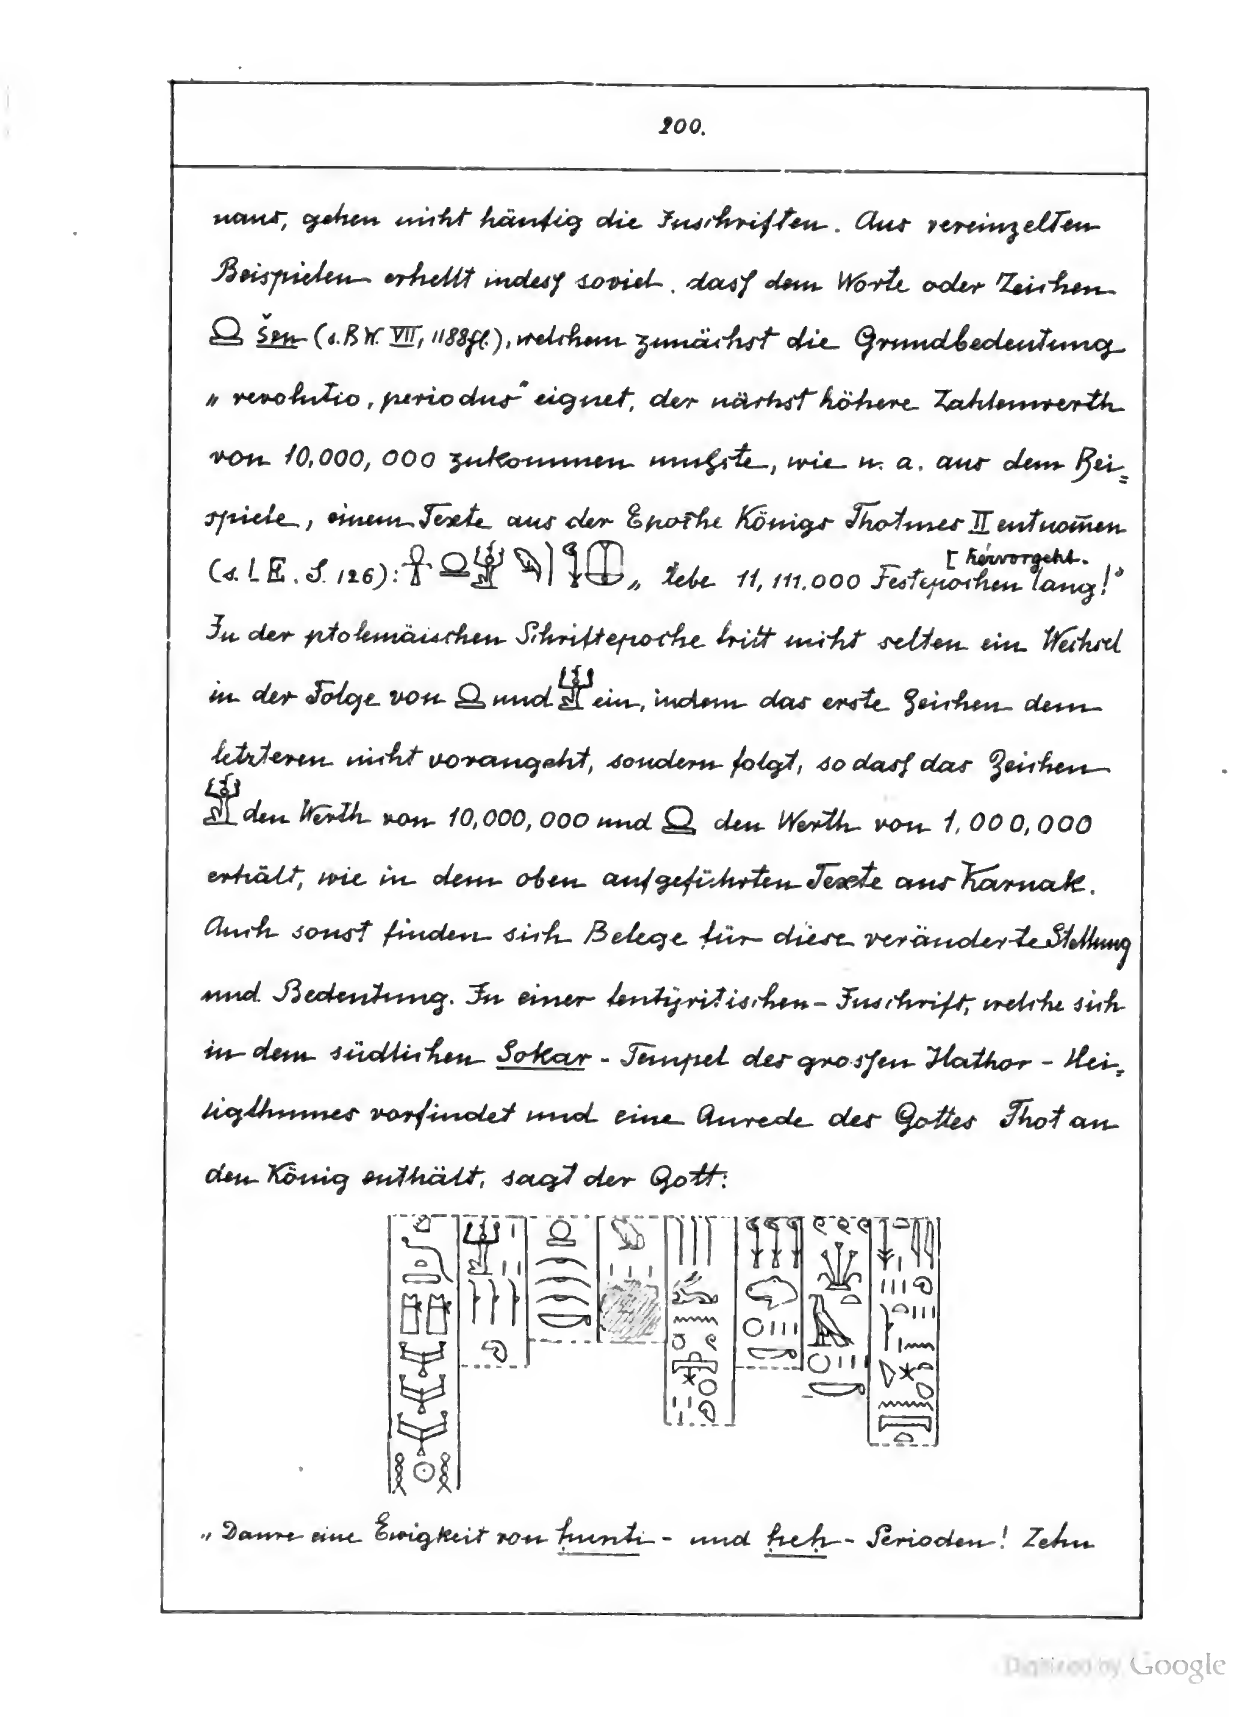 200.
naus, gehen nicht häufig die Inschriften. Aus vereinzelten
Beispielen erhellt indess soviel, dass dem Worte oder Zeichen
𓍶 šen (s. BW. VII, 1188fl.), welchem zunächst die Grundbedeutung
„revolutio, periodus" eignet, der nächst höhere Zahlenwerth
von 10,000,000 zukommen musste, wie u. a. aus dem Bei=
spiele, einem Texte aus der Epoche Königs Thotmes II entnom̄en
[hervorgeht.
(s. LE. S. 126): 𓋹 𓍶 𓁨 𓆐 𓂭 𓆼 „lebe 11,111.000 Festepochen lang!"
In der ptolemäischen Schriftepoche tritt nicht selten ein Wechsel
in der Folge von 𓍶 und 𓁨 ein, indem das erste Zeichen dem
letzteren nicht vorangeht, sondern folgt, so dass das Zeichen
𓁨 den Werth von 10,000,000 und 𓍶 den Werth von 1,000,000
erhält, wie in dem oben aufgeführten Texte aus Karnak.
Auch sonst finden sich Belege für diese veränderte Stellung
und Bedeutung. In einer tentyritischen Inschrift, welche sich
in dem südlichen Sokar-Tempel des grossen Hathor-Hei=
ligthumes vorfindet und eine Anrede des Gottes Thot an
den König enthält, sagt der Gott:
„Daure eine Ewigkeit von ḥunti- und ḥeḥ-Perioden! Zehn
Digitized by Google